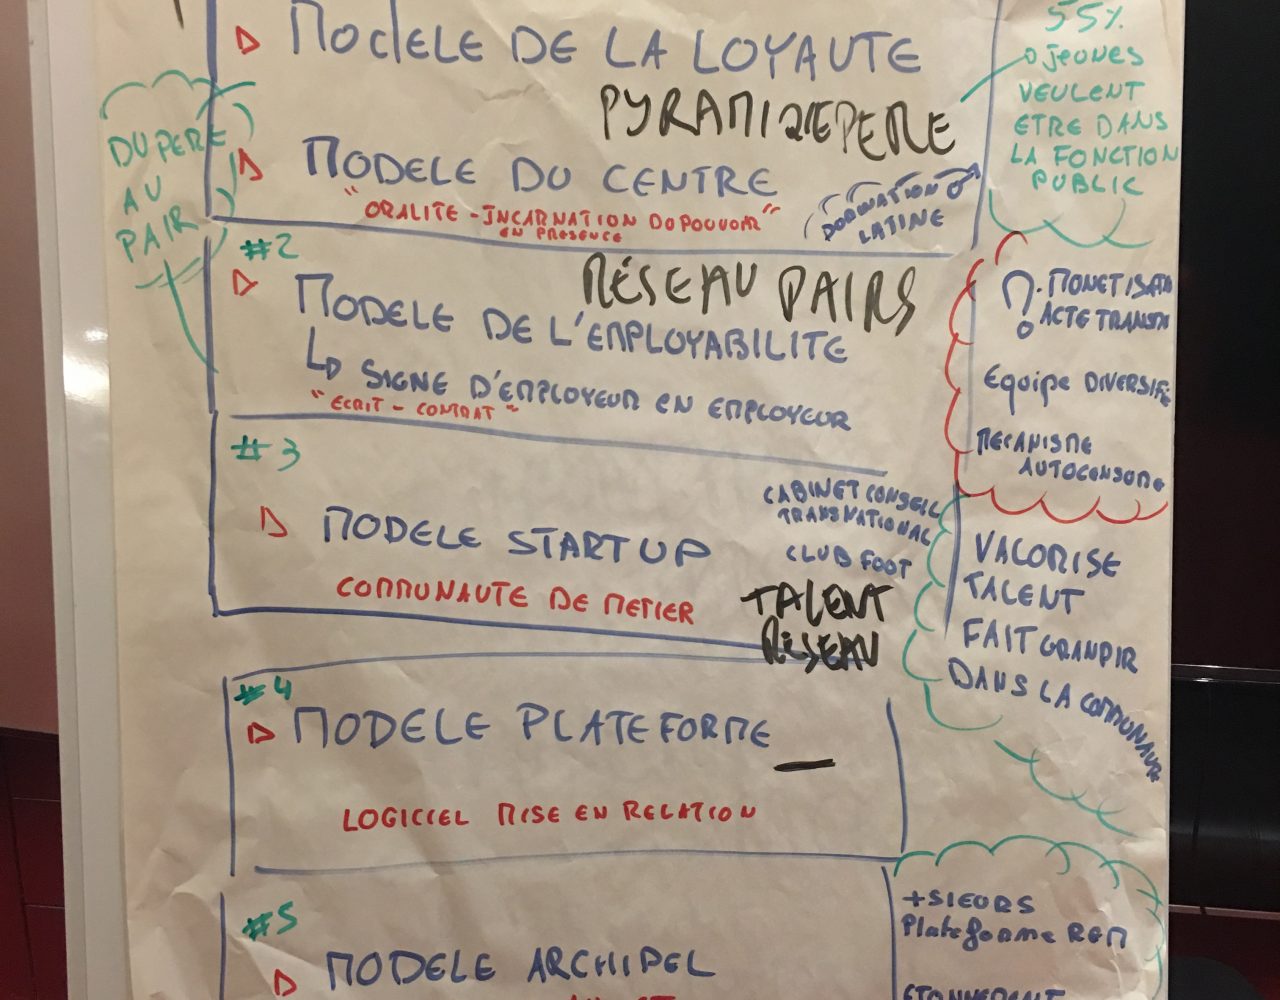 MODELE DE LA LOYAUTE
PYRAMIDE PERE
MODELE DU CENTRE
"ORALITE - INCARNATION DU POUVOIR"
EN PRESENCE
DOMINATION ♂
LATINE
55%
JEUNES
VEULENT
ETRE DANS
LA FONCTION
PUBLIC
DU PERE
AU
PAIR
#2
RÉSEAU PAIRS
MODELE DE L'EMPLOYABILITE
SIGNE D'EMPLOYEUR EN EMPLOYEUR
"ECRIT - CONTRAT"
?. MONETISATO
ACTE TRANSM
Equipe DIVERSIFIE
MECANISME
AUTOCONSOMO
#3
MODELE STARTUP
COMMUNAUTE DE METIER
CABINET CONSEIL
TRANSNATIONAL
CLUB FOOT
TALENT
RÉSEAU
VALORISE
TALENT
FAIT GRANDIR
DANS LA COMMUNAUTE
#4
MODELE PLATEFORME
LOGICIEL MISE EN RELATION
#5
MODELE ARCHIPEL
+SIEURS
Plateforme REM